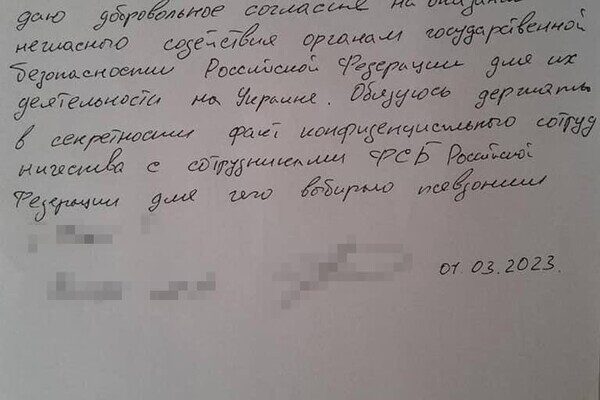 даю добровольное согласие на оказание
негласного содействия органам государственной
безопасности Российской Федерации для их
деятельности на Украине. Обязуюсь держать
в секретности факт конфиденциального сотруд
ничества с сотрудниками ФСБ Российской
Федерации для чего выбираю псевдоним
01.03.2023.